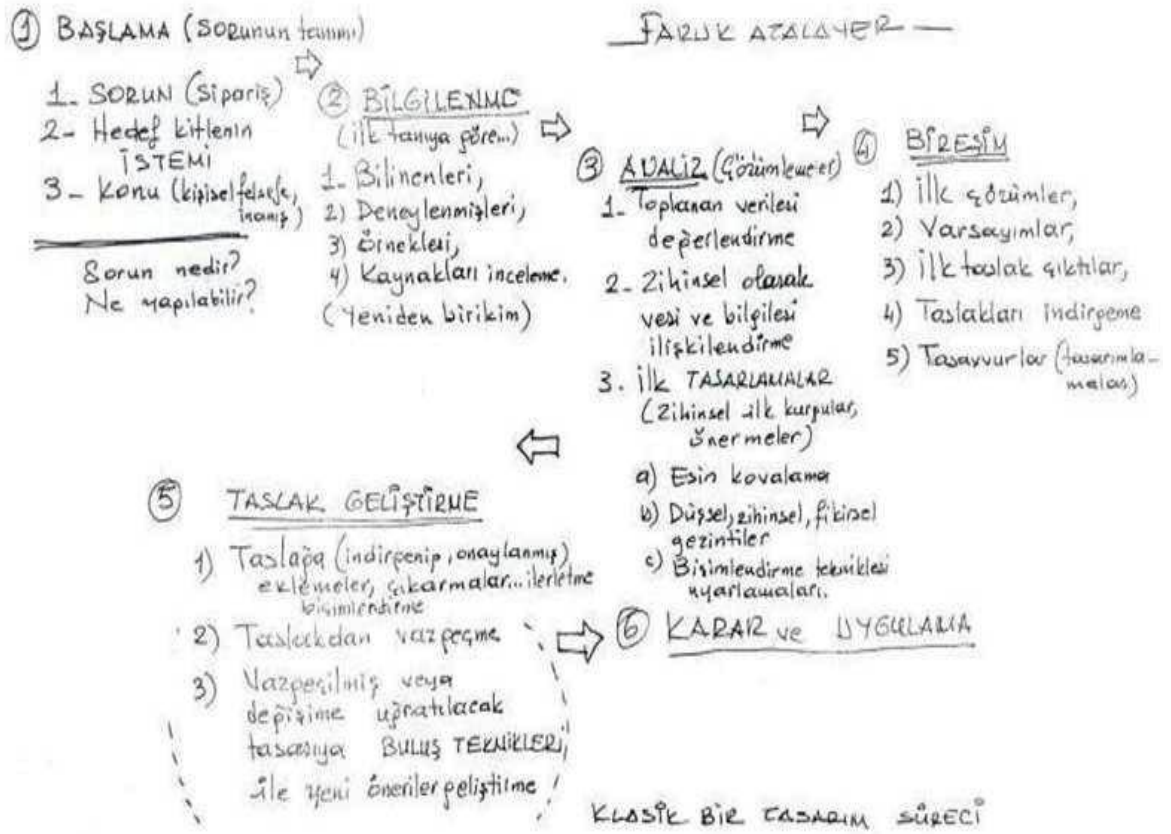 ① BAŞLAMA (Sorunun tanımı)
1- SORUN (Sipariş)
2- Hedef kitlenin
İSTEMİ
3- Konu (kişisel felsefe,
inanış)
Sorun nedir?
Ne yapılabilir?
FARUK ATALAYER
② BİLGİLENME
(ilk tanıya göre...)
1- Bilinenleri,
2) Deneylenmişleri,
3) örnekleri,
4) Kaynakları inceleme.
(Yeniden birikim)
③ ANALİZ (Çözümlemeler)
1- Toplanan verileri
değerlendirme
2- Zihinsel olarak
veri ve bilgileri
ilişkilendirme
3. İlk TASARLAMALAR
(Zihinsel ilk kurgular,
önermeler)
a) Esin kovalama
b) Düşsel, zihinsel, fikirsel
gezintiler
c) Biçimlendirme teknikleri
uyarlamaları.
④ BİREŞİM
1) İlk çözümler,
2) Varsayımlar,
3) İlk taslak çıktılar,
4) Taslakları indirgeme
5) Tasavvurlar (tasarımla-
malar)
⑤ TASLAK GELİŞTİRME
1) Taslağa (indirgenip, onaylanmış)
eklemeler, çıkarmalar... ilerletme
biçimlendirme
2) Taslakdan vazgeçme
3) Vazgeçilmiş veya
değişime uğratılacak
tasarıya BULUŞ TEKNİKLERİ,
ile yeni öneriler geliştirme
⑥ KARAR ve UYGULAMA
KLASİK BİR TASARIM SÜRECİ